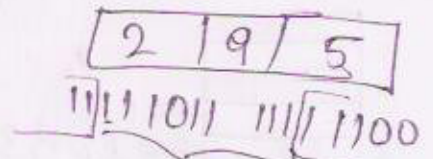 2 9 5
11 111011 11111 1100